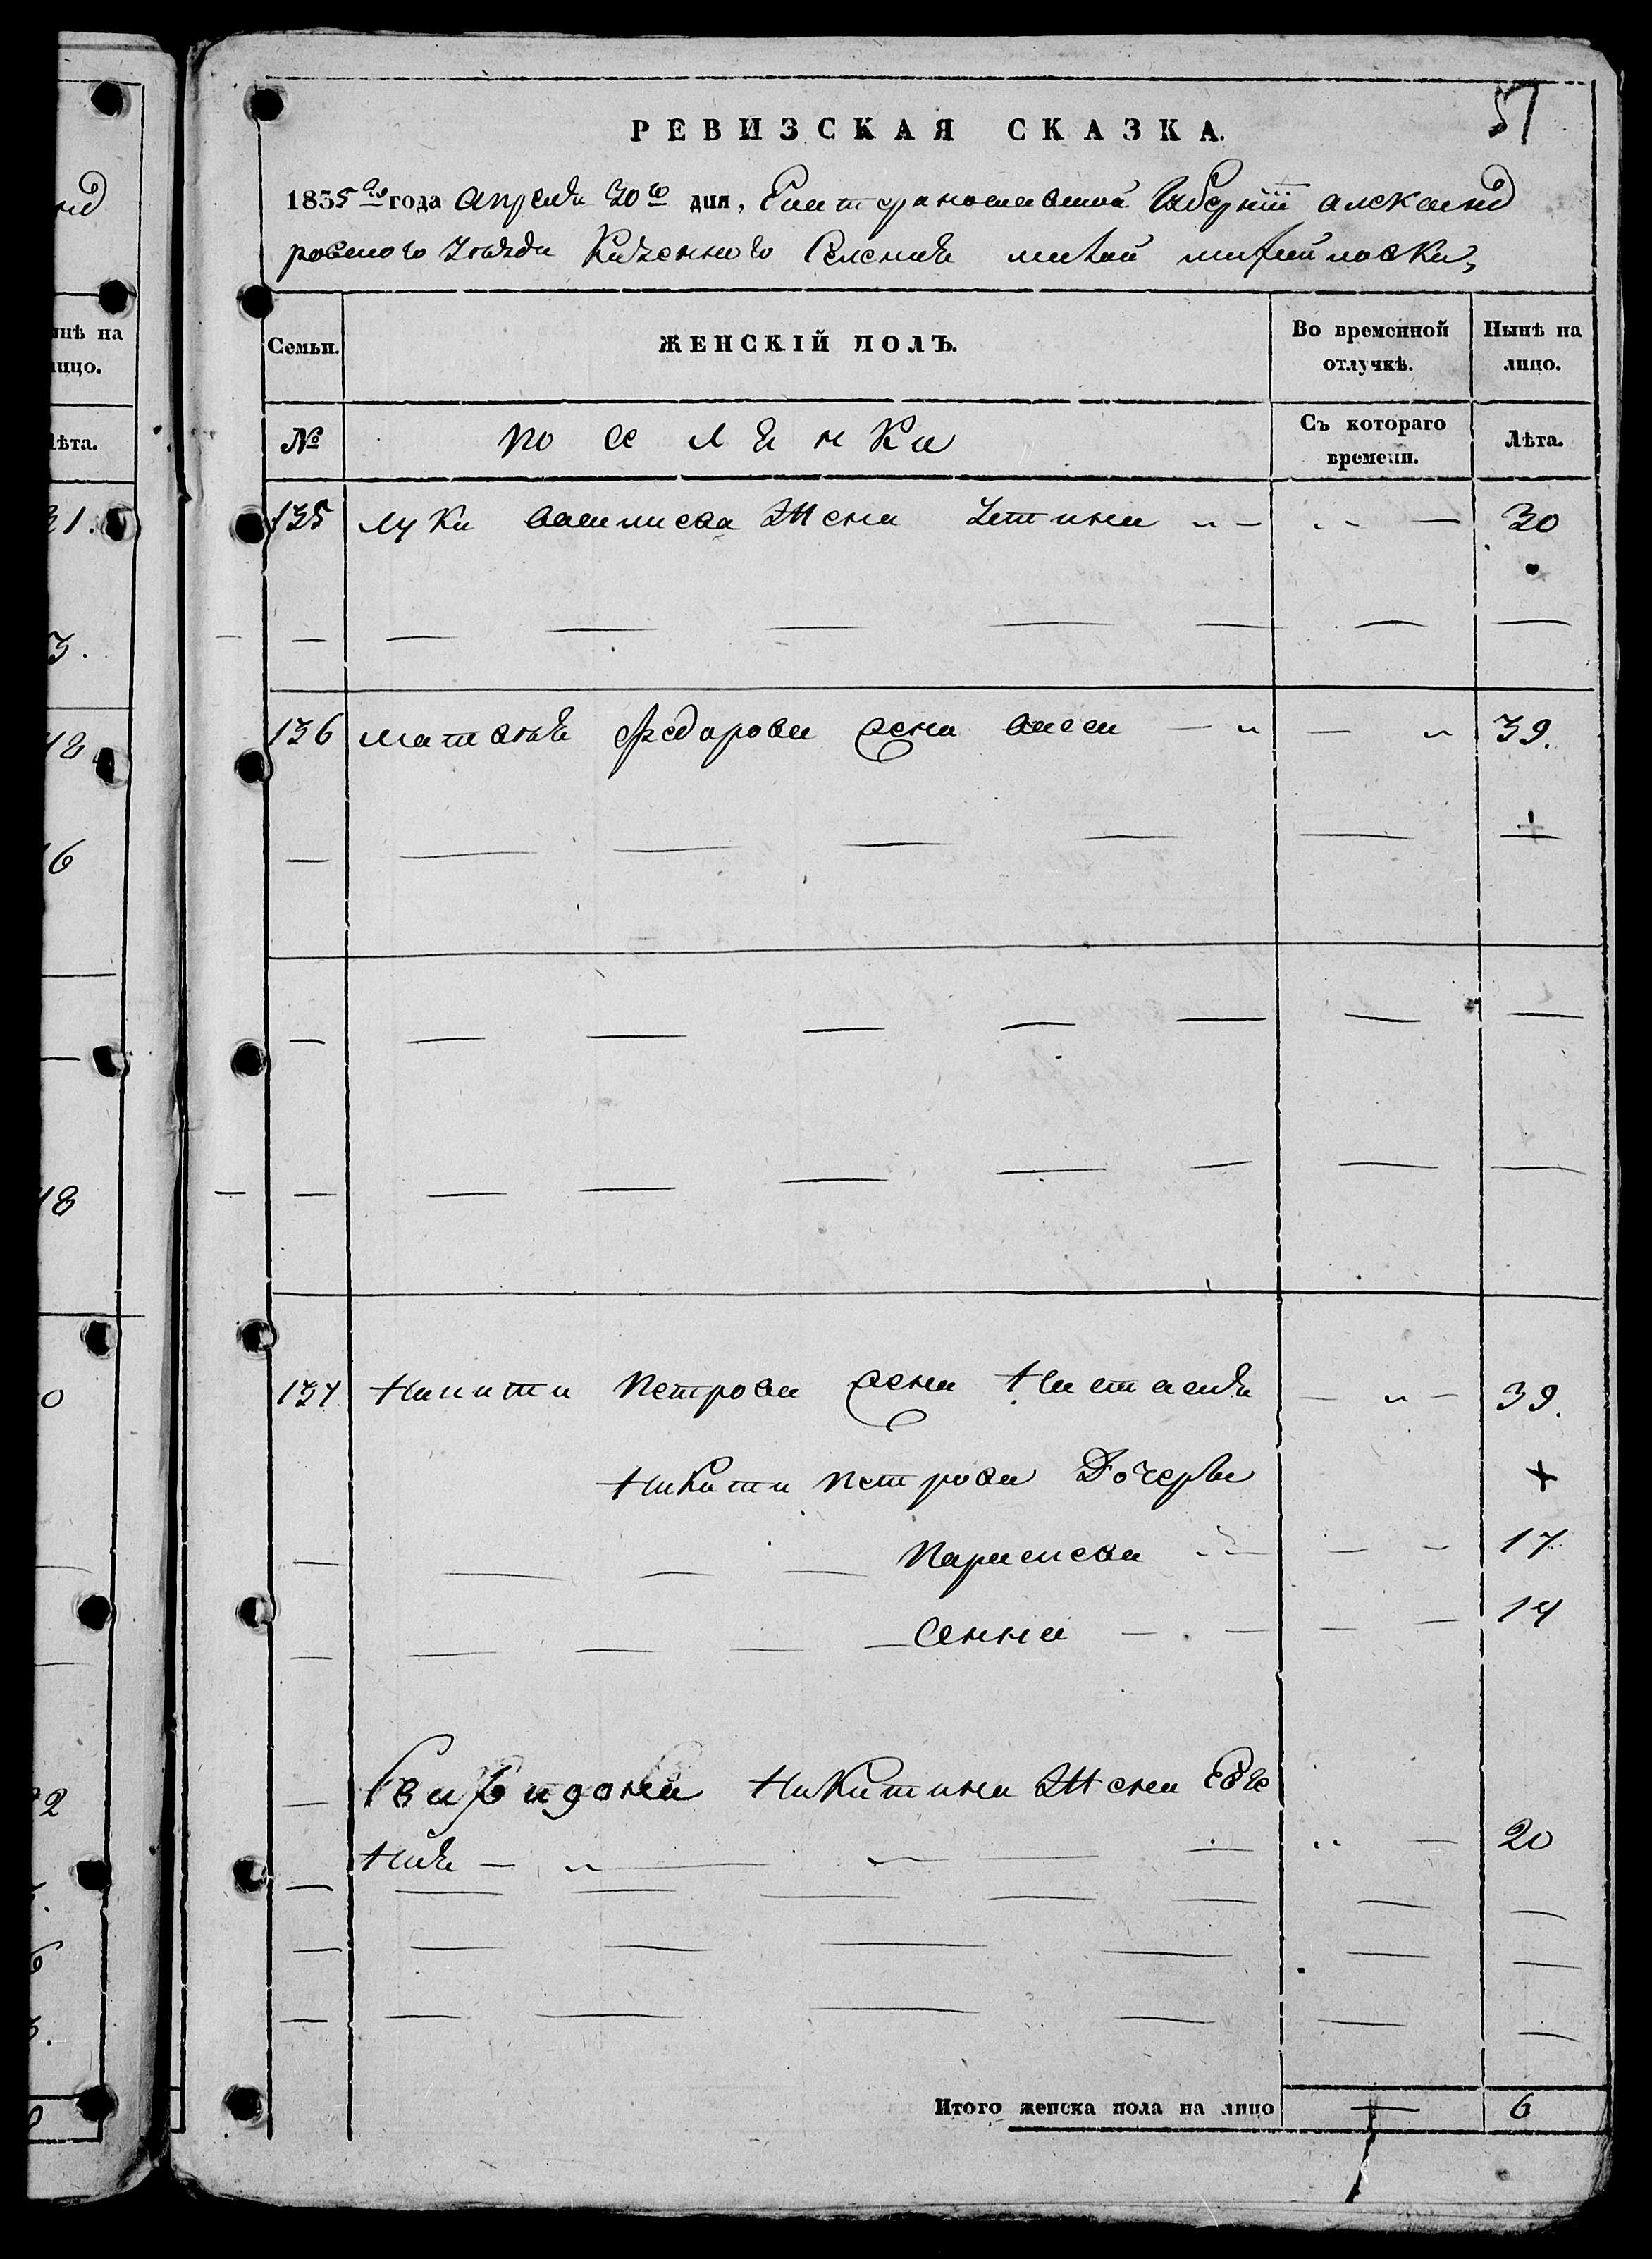 51
РЕВИЗСКАЯ СКАЗКА.
1835го года Апреля 30го дня, Екатеринославской Губернии александ
ровского Уезда Казенного Селения малой михайловки,
Семьи.
ЖЕНСКІЙ ПОЛЪ.
Во временной отлучкѣ.
Нынѣ на лицо.
№
поселянки
Съ котораго времени.
Лѣта.
135 луки васильева жена Устиня 30
136 матвѣя федорова жена васса 39.
137 Никити петрова жена Настасия 39.
Никити петрова Дочери
Параскева 17
Анна 14
Свиридона Никитина жена Евге
ния 20
Итого женска пола на лицо 6
нѣ на
ицо.
ѣта.